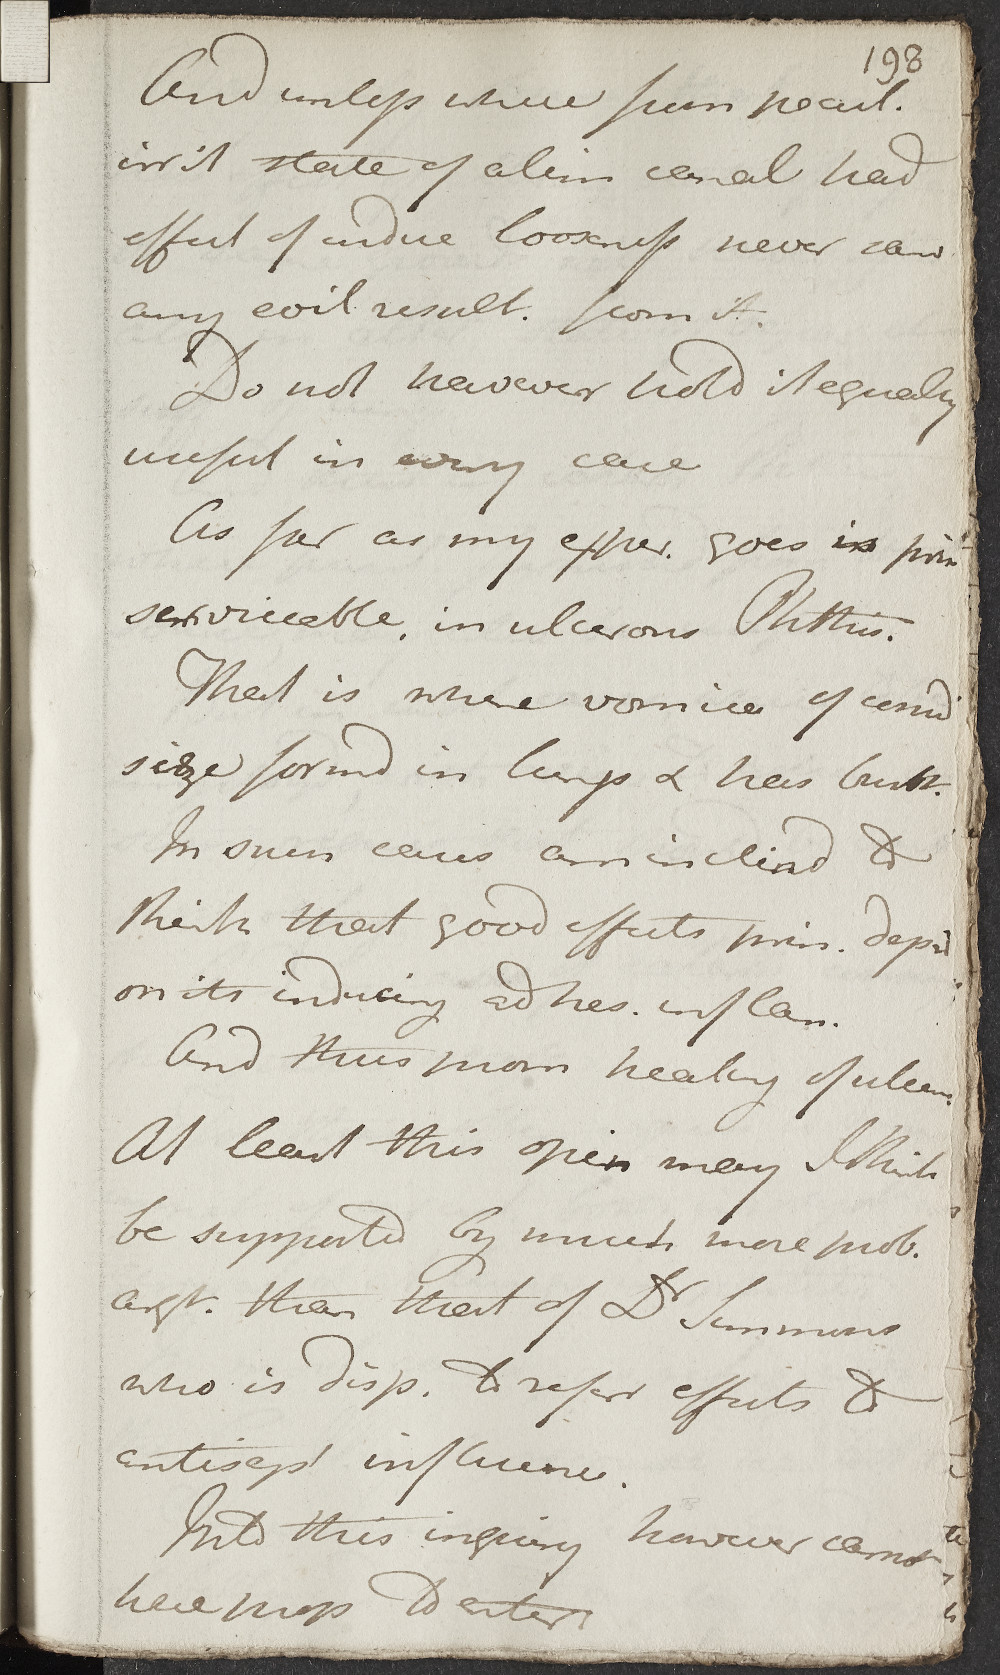 198
And unless where from pecul.
irrit state of alim canal had
effect of undue looseness never saw
any evil result. from it.
Do not however hold it equally
useful in every case
As far as my exper. goes is prin
serviceable, in ulcerous Phthis.
That is where vomica of consid
size formd in lungs & has burst.
In such cases am inclind to
think that good effects prin. depd
on its inducing adhes. inflam.
And thus prom healing of ulcer
At least this opin may I think
be supported by much more prob.
argt. than that of Dr Simmons
who is disp. to refer effects to
antisept influence.
Into this inquiry however cannot
here prop to enter